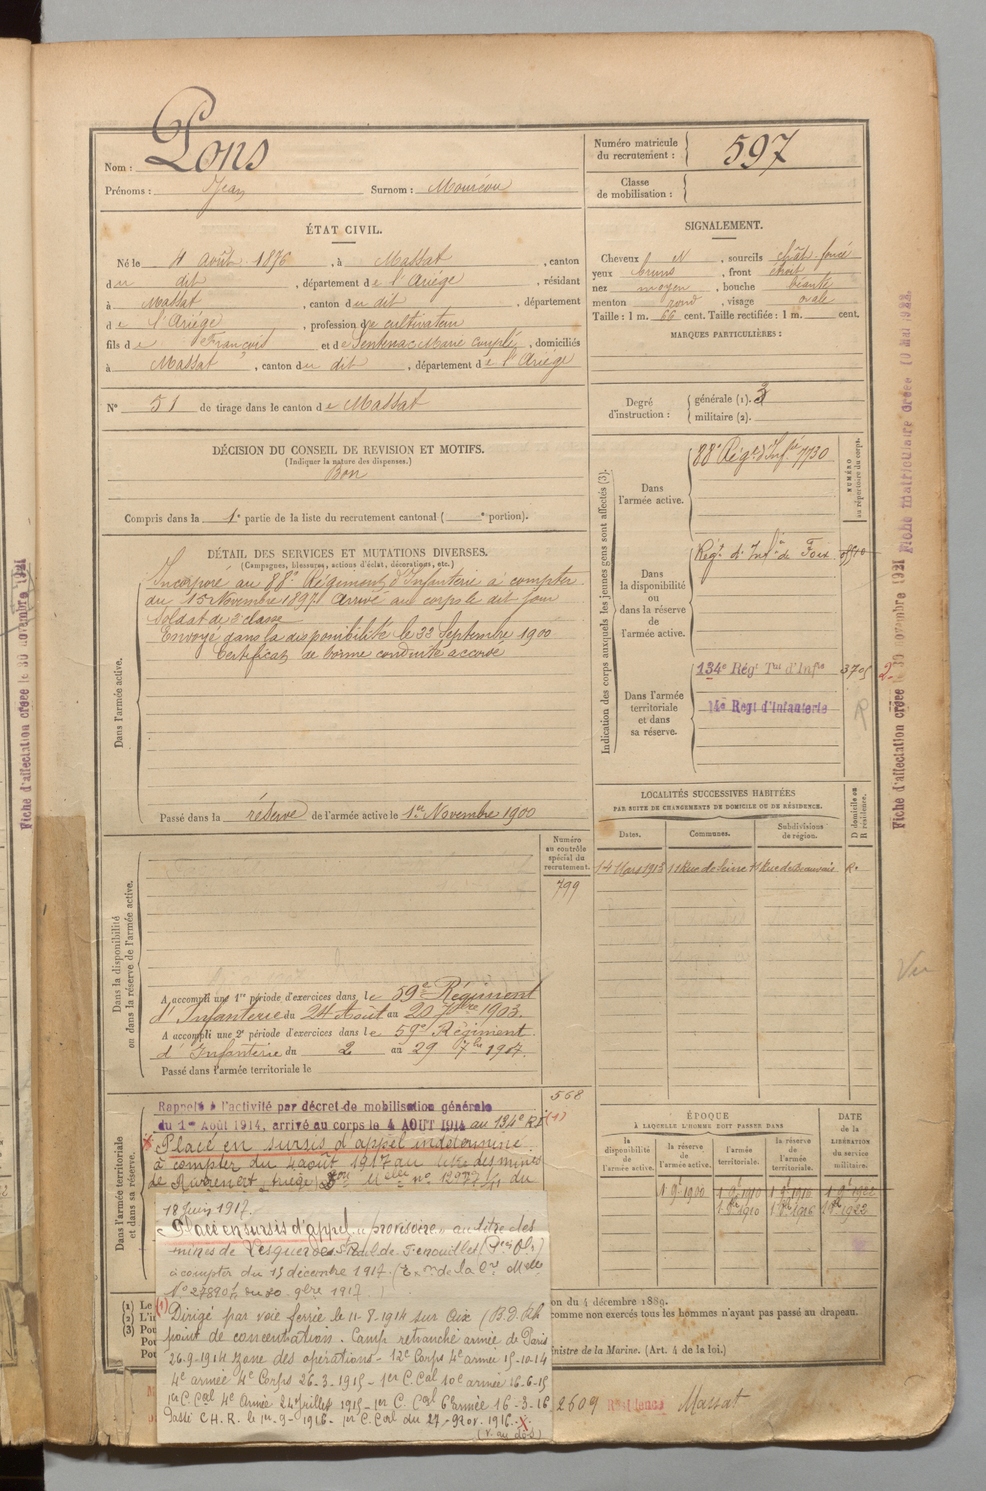 Nom : Pons
Prénoms : Jean Surnom : Mouréou
Numéro matricule du recrutement : 597
Classe de mobilisation :
ÉTAT CIVIL.
Né le 4 août 1876, à Massat, canton
du dit, département de l'Ariége, résidant
à Massat, canton du dit, département
de l'Ariége, profession de cultivateur
fils de François et de Sentenac Marie Complé, domiciliés
à Massat, canton du dit, département de l'Ariége
N° 51 de tirage dans le canton de Massat
SIGNALEMENT.
Cheveux N, sourcils chât. foncé
yeux bruns, front étroit
nez moyen, bouche béante
menton rond, visage ovale
Taille : 1 m. 66 cent. Taille rectifiée : 1 m. cent.
MARQUES PARTICULIÈRES :
Degré d'instruction : générale (1). 3
militaire (2).
DÉCISION DU CONSEIL DE REVISION ET MOTIFS.
(Indiquer la nature des dispenses.)
Bon
Compris dans la 1e partie de la liste du recrutement cantonal ( e portion).
DÉTAIL DES SERVICES ET MUTATIONS DIVERSES.
(Campagnes, blessures, actions d'éclat, décorations, etc.)
Dans l'armée active.
Incorporé au 88e Régiment d'Infanterie à compter
du 15 Novembre 1897. Arrivé au corps le dit jour
Soldat de 2e classe
Envoyé dans la disponibilité le 22 Septembre 1900
Certificat de bonne conduite accordé
Passé dans la réserve de l'armée active le 1er Novembre 1900
Indication des corps auxquels les jeunes gens sont affectés (3).
NUMÉRO au répertoire du corps.
Dans l'armée active.
88e Régt d'Infie 7730
Dans la disponibilité ou dans la réserve de l'armée active.
Régt d'Infie de Foix
Dans l'armée territoriale et dans sa réserve.
134e Régt Tal d'Infie
14e Regt d'Infanterie
R
LOCALITÉS SUCCESSIVES HABITÉES
PAR SUITE DE CHANGEMENTS DE DOMICILE OU DE RÉSIDENCE.
Dates. Communes. Subdivisions de région. D domicile ou R résidence.
14 Mars 1913 R.
Numéro au contrôle spécial du recrutement.
799
Dans la disponibilité ou dans la réserve de l'armée active.
A accompli une 1re période d'exercices dans le 59e Régiment
d'Infanterie du 24 Août au 20 7bre 1903.
A accompli une 2e période d'exercices dans le 59e Régiment
d'Infanterie du 2 au 29 7bre 1907.
Passé dans l'armée territoriale le
568
Dans l'armée territoriale et dans sa réserve.
Rappelé à l'activité par décret de mobilisation générale
du 1er Août 1914, arrivé au corps le 4 AOUT 1914 au 134e RI (1)
Placé en sursis d'appel indéterminé
à compter du 4 août 1917 au titre des mines
de Rivèrenert Ariège
18 Juin 1917.
Placé en sursis d'appel provisoire au titre des
mines de Lesquerde St Paul de Fenouillet (Pées Ales)
à compter du 15 décembre 1917. (Exon de la Cre Mlle
N° 27890 du 20 9bre 1917)
(1) Dirigé par voie ferrée le 11-8-1914 sur Aix
point de concentration. Camp retranché armée de Paris
26-9-1914 zone des opérations - 12e Corps 4e armée 15-10-14
4e armée 4e Corps 26-3-1915 - 1er C. Cal 10e armée 16-6-15
1er C. Cal 4e Armée 24 Juillet 1915 - 1er C. Cal 6e armée 16-3-16
Passé C.H.R. le 1er-9-1916 - 1er C. Cal du 27-9bre 1916. X
(V. au dos)
ÉPOQUE
À LAQUELLE L'HOMME DOIT PASSER DANS
la disponibilité de l'armée active. la réserve de l'armée active. l'armée territoriale. la réserve de l'armée territoriale.
DATE de la LIBÉRATION du service militaire.
1 9bre 1900 1 9bre 1910 1 9bre 1916 1 9bre 1922
(1) Le
(2) L'in
(3) Pou
Pou
Pou
on du 4 décembre 1889.
comme non exercés tous les hommes n'ayant pas passé au drapeau.
inistre de la Marine. (Art. 4 de la loi.)
2609 Résidence Massat
Fiche d'affectation créée le 30 novembre 1921
Fiche matriculaire créée 10 mai 1922.
Fiche d'affectation créée le 30 novembre 1921
Vu